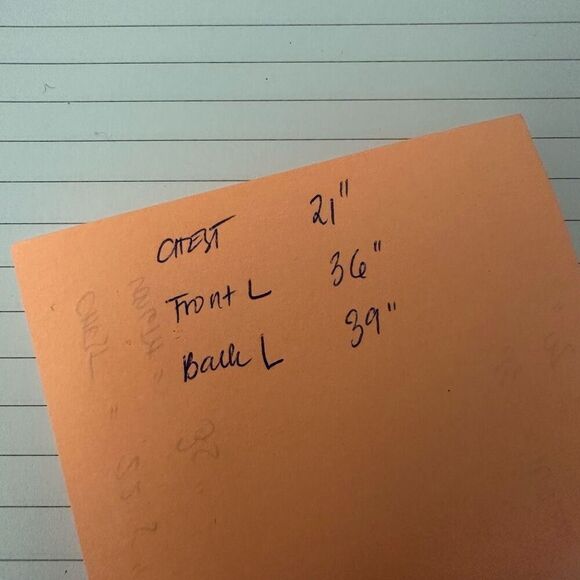 CHEST 21"
Front L 36"
Back L 39"